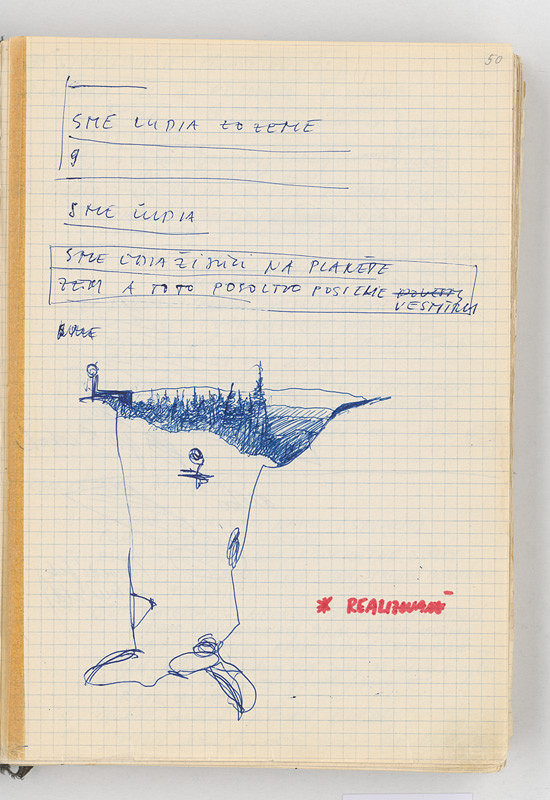 50
SME ĽUDIA ZO ZEME
9
SME ĽUDIA
SME ĽUDIA ŽIJÚCI NA PLANÉTE
ZEM A TOTO POSOLSTVO POSIEME
VESMÍRU
* REALIZOVANÉ